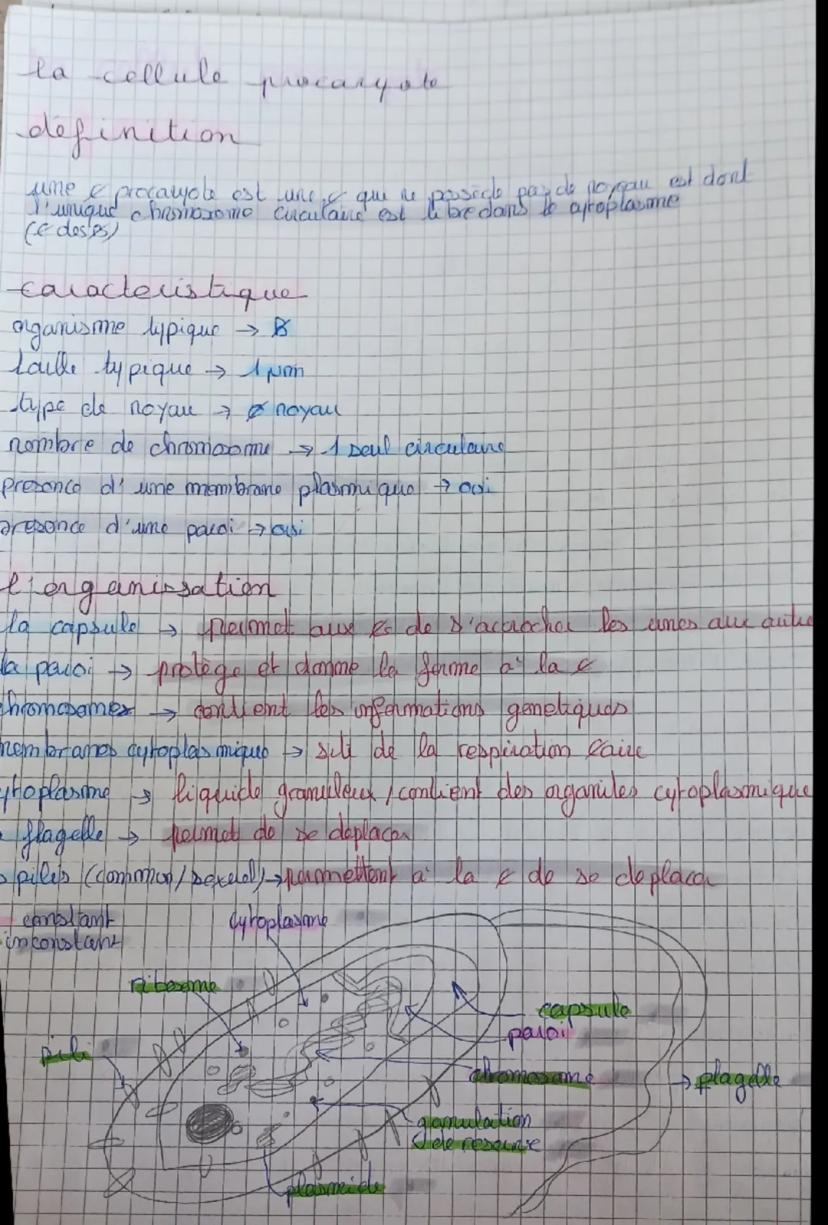 la cellule procaryote
definition
une c procaryote est une c qui ne possede pas de noyau est dont
l'unique chromosome circulaire est libre dans le cytoplasme
caracteristique
organisme typique → B
taille typique → 1 µm
type de noyau → ø noyau
nombre de chromosome → 1 seul circulaire
presence d'une membrane plasmique → oui
presence d'une paroi → oui
l'organisation
la capsule → permet aux c de s'acrocher les unes aux autre
la paroi → protège et donne la forme à la c
chromosomes → contient les informations genetiques
membranes cytoplasmique → de la respiration
cytoplasme → liquide granuleux / contient des organites cytoplasmique
flagelle → permet de se deplacer
pilis (common / sexuel) → permettent à la c de se deplacer
constant
inconstant
cytoplasme
ribosome
capsule
paroi
pili
chromosome
→ flagelle
granulation
de reserve
plasmide